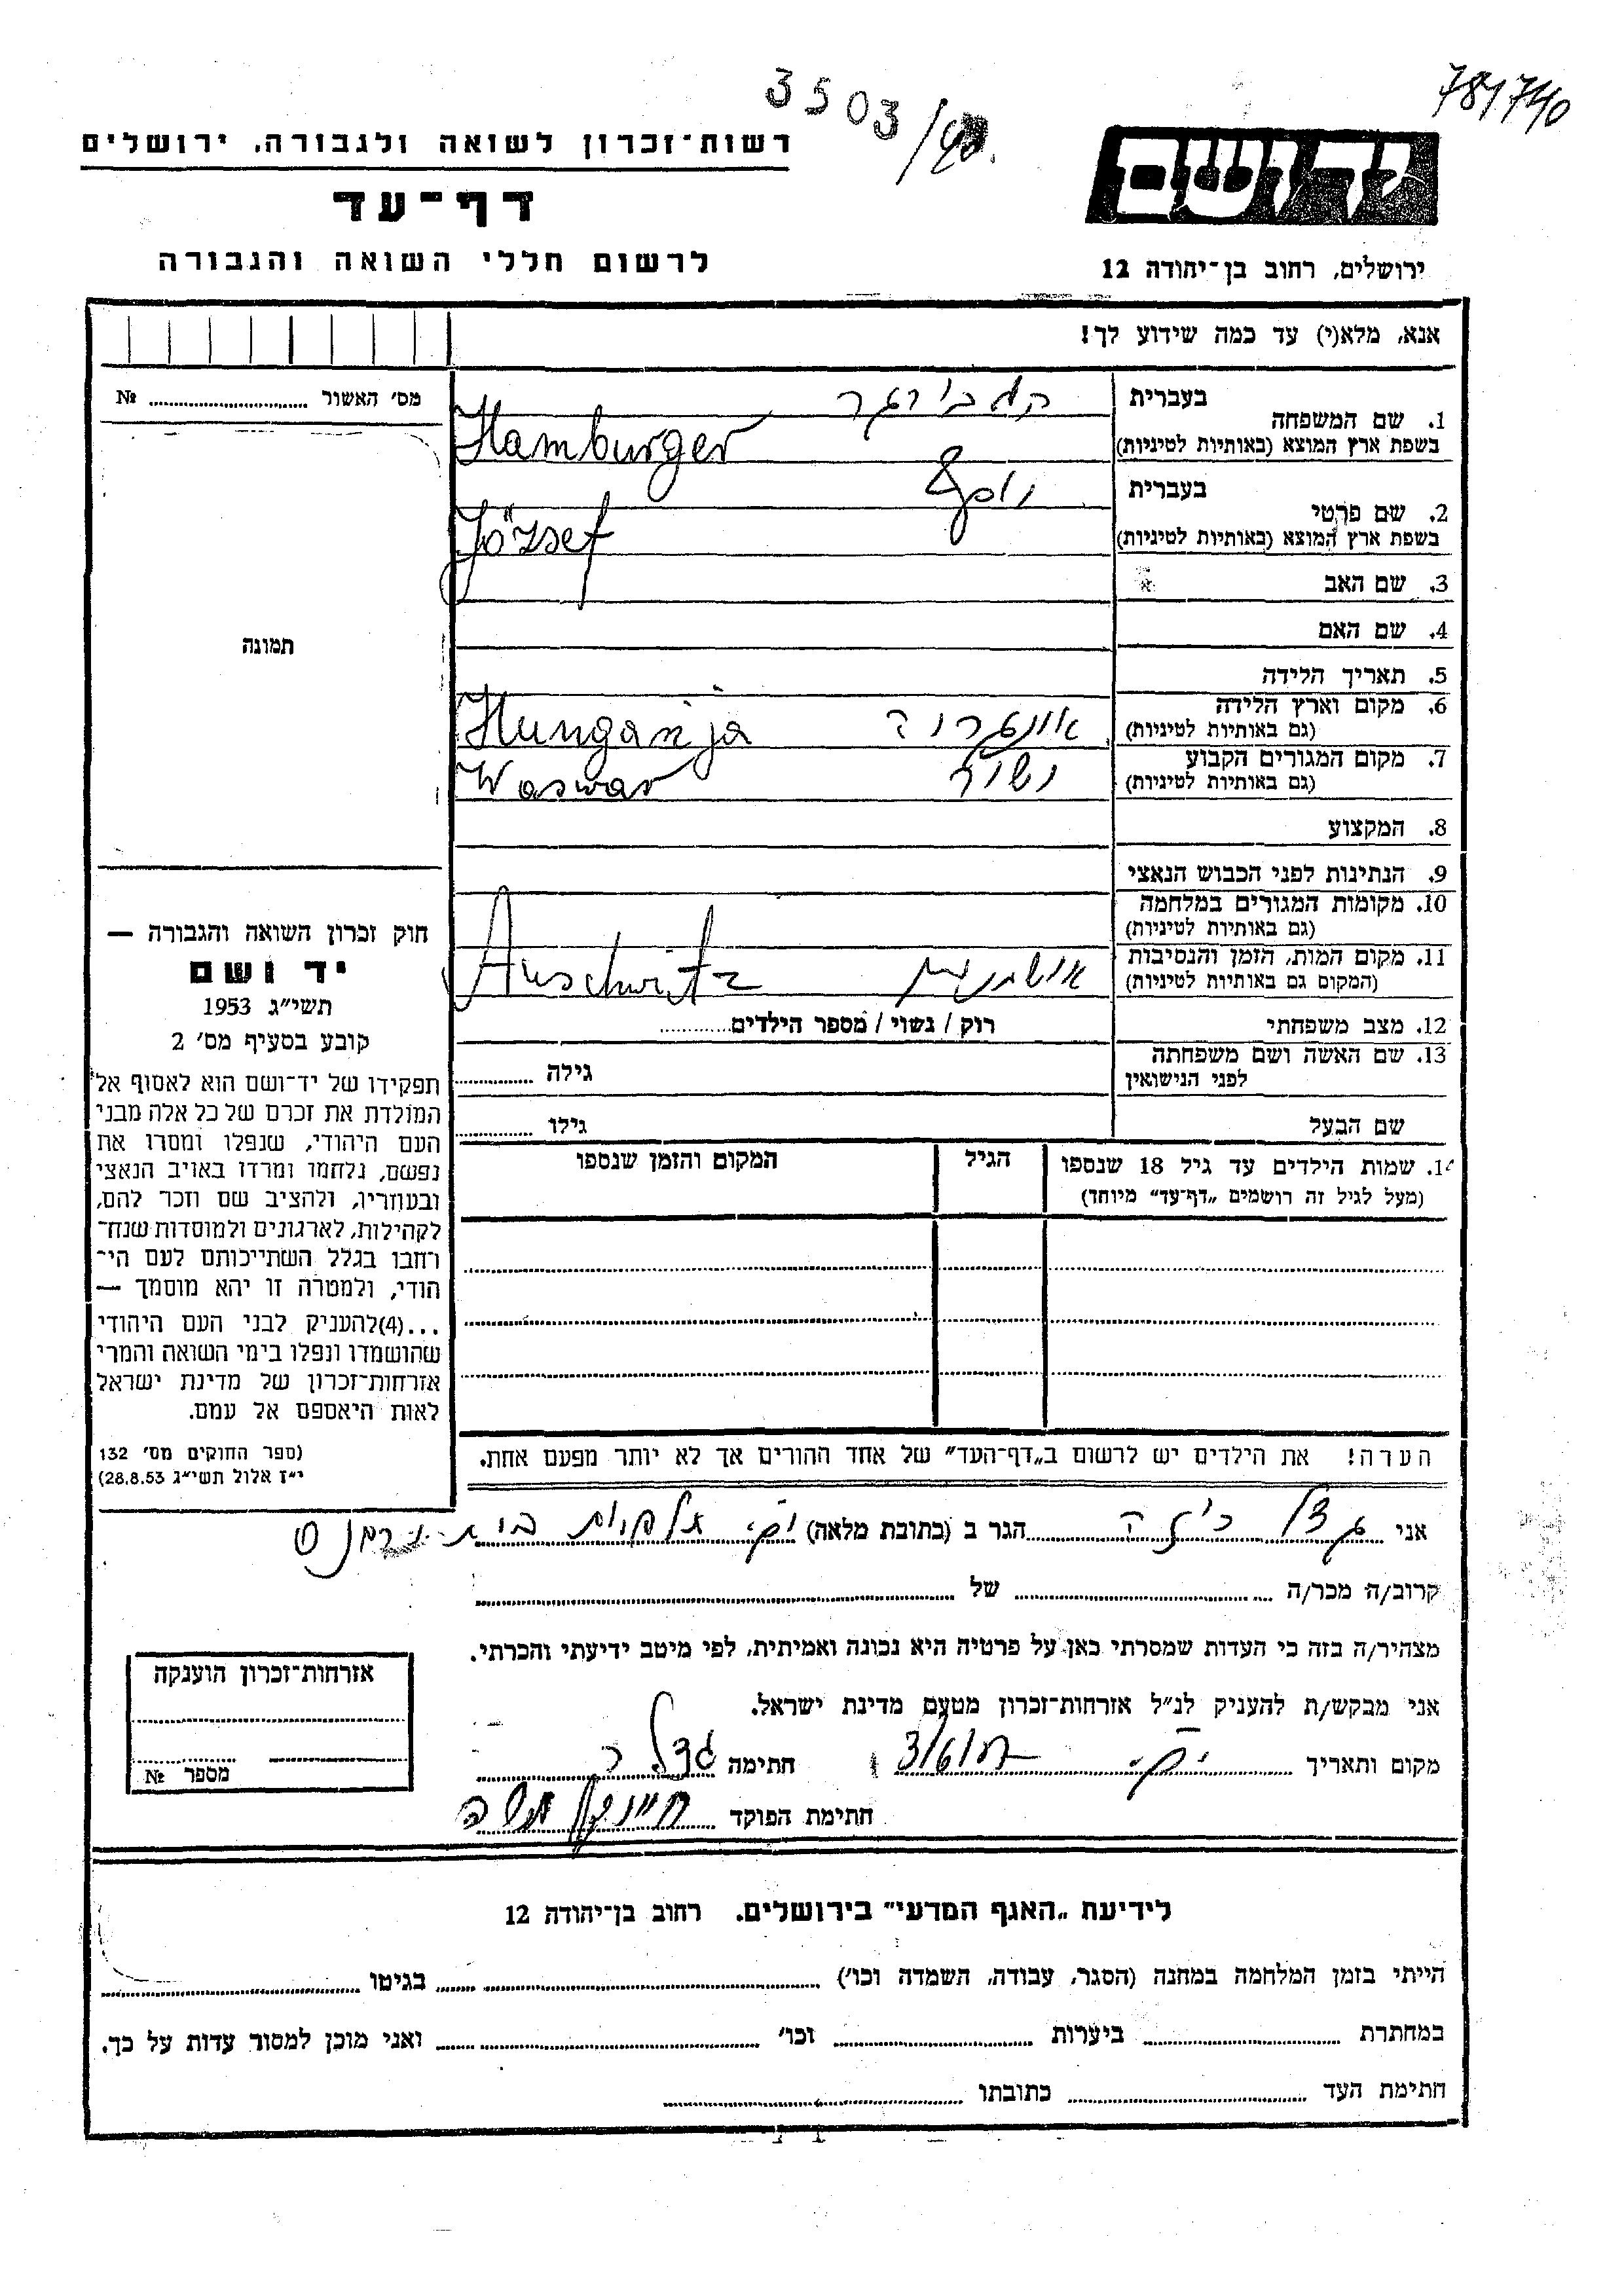 3503/
781740
רשות־זכרון לשואה ולגבורה, ירושלים
דף־עד
לרשום חללי השואה והגבורה
ידושם
ירושלים, רחוב בן־יהודה 12
אנא, מלא(י) עד כמה שידוע לך!
מס׳ האשור № 
תמונה
1. שם המשפחה
בעברית המבורגר
בשפת ארץ המוצא (באותיות לטיניות) Hamburger
2. שם פרטי
בעברית יוסף
בשפת ארץ המוצא (באותיות לטיניות) József
3. שם האב
4. שם האם
5. תאריך הלידה
6. מקום וארץ הלידה
(גם באותיות לטיניות) Hungarija
7. מקום המגורים הקבוע
(גם באותיות לטיניות) Waswar
8. המקצוע
9. הנתינות לפני הכבוש הנאצי
10. מקומות המגורים במלחמה
(גם באותיות לטיניות)
11. מקום המות, הזמן והנסיבות
(המקום גם באותיות לטיניות) Auschwitz
12. מצב משפחתי רוק / נשוי / מספר הילדים
13. שם האשה ושם משפחתה
לפני הנישואין גילה
שם הבעל גילו
14. שמות הילדים עד גיל 18 שנספו
(מעל לגיל זה רושמים „דף־עד” מיוחד)
הגיל
המקום והזמן שנספו
חוק זכרון השואה והגבורה —
יד ושם
תשי״ג 1953
קובע בסעיף מס׳ 2
תפקידו של יד־ושם הוא לאסוף אל
המולדת את זכרם של כל אלה מבני
העם היהודי, שנפלו ומסרו את
נפשם, נלחמו ומרדו באויב הנאצי
ובעוזריו, ולהציב שם וזכר להם,
לקהילות, לארגונים ולמוסדות שנח־
רחבו בגלל השתייכותם לעם הי־
הודי, ולמטרה זו יהא מוסמך —
...(4)להעניק לבני העם היהודי
שהושמדו ונפלו בימי השואה והמרי
אזרחות־זכרון של מדינת ישראל
לאות היאספם אל עמם.
(ספר החוקים מס׳ 132
י״ז אלול תשי״ג 28.8.53)
הערה! את הילדים יש לרשום ב„דף־העד” של אחד ההורים אך לא יותר מפעם אחת.
אני הגר ב (כתובת מלאה)
קרוב/ה מכר/ה של
מצהיר/ה בזה כי העדות שמסרתי כאן על פרטיה היא נכונה ואמיתית, לפי מיטב ידיעתי והכרתי.
אני מבקש/ת להעניק לנ״ל אזרחות־זכרון מטעם מדינת ישראל.
מקום ותאריך חתימה
חתימת הפוקד
אזרחות־זכרון הוענקה
מספר №
לידיעת „האגף המדעי” בירושלים. רחוב בן־יהודה 12
הייתי בזמן המלחמה במחנה (הסגר, עבודה, השמדה וכו׳) בגיטו
במחתרת ביערות וכו׳ ואני מוכן למסור עדות על כך.
חתימת העד כתובתו